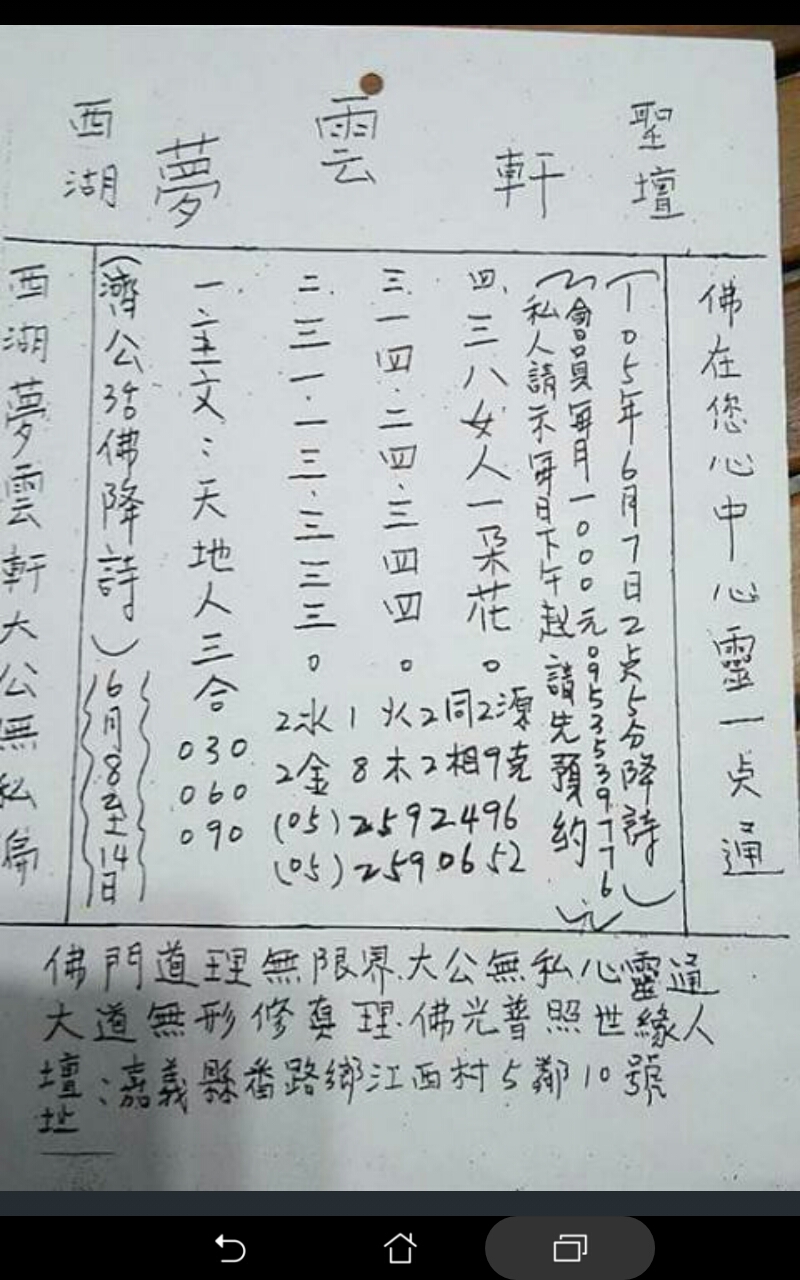 西湖 夢 雲 軒 聖壇
佛在您心中心靈一点通
(105年6月7日2点5分降詩)
會員每月1000元0953539776
私人請示每日下午起請先預約
四、三八女人一朵花。
三、一四.二四.三四四。
二、三一.一三.三三三。
一、主文:天地人三合
2水1火2同2源
2金8木2相9克
(05)2592496
(05)2590652
030
060
090
(濟公活佛降詩)
6月8至14日
西湖夢雲軒大公無私偏
佛門道理無限界.大公無私心靈通
大道無形修真理.佛光普照世緣人
壇址:嘉義縣番路鄉江西村5鄰10號